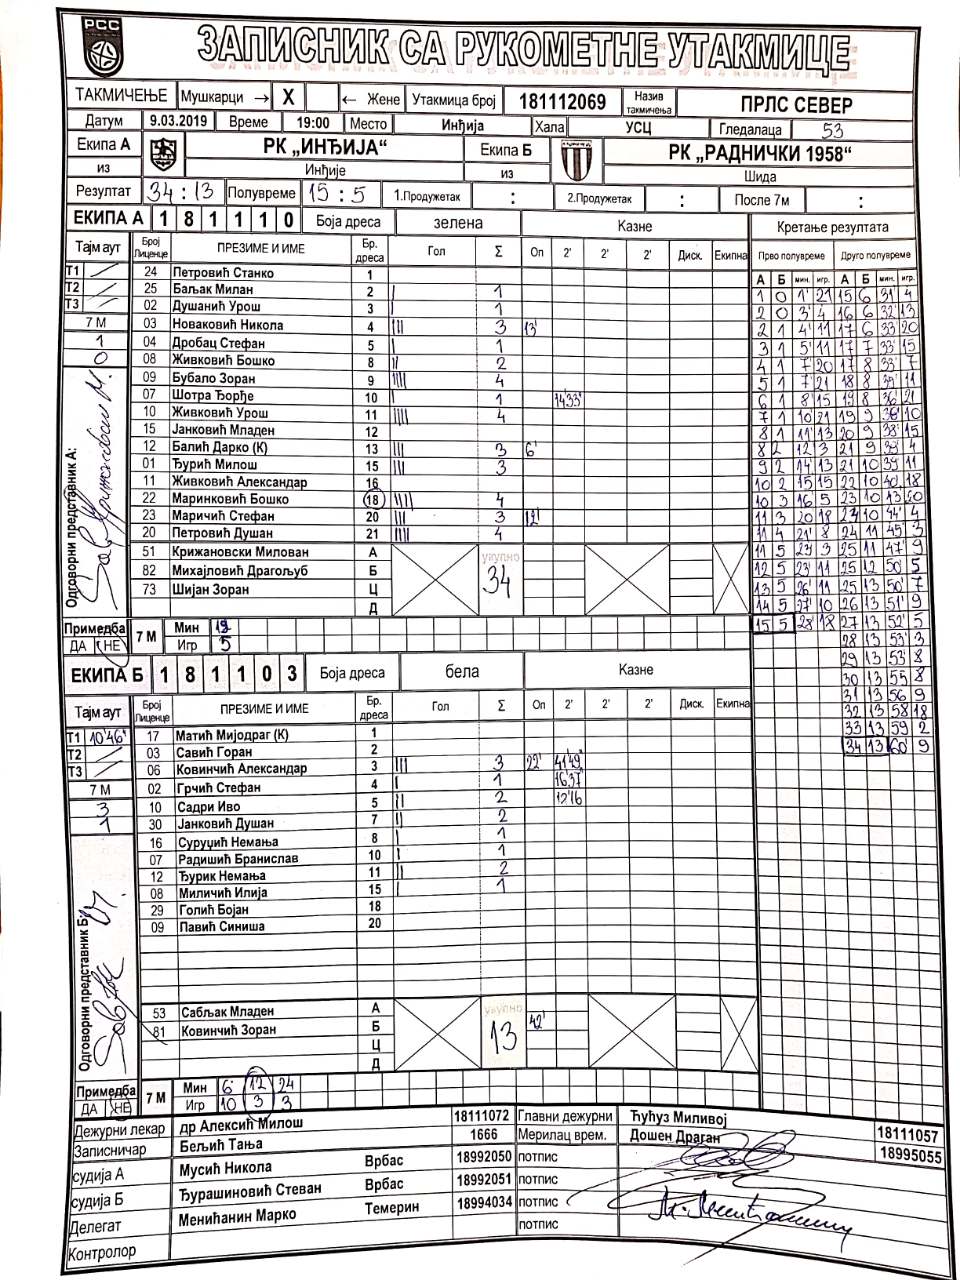 РСС
ЗАПИСНИК СА РУКОМЕТНЕ УТАКМИЦЕ
ТАКМИЧЕЊЕ Мушкарци → X ← Жене Утакмица број 181112069 Назив такмичења ПРЛС СЕВЕР
Датум 9.03.2019 Време 19:00 Место Инђија Хала УСЦ Гледалаца 53
Екипа А РК „ИНЂИЈА“ Екипа Б РК „РАДНИЧКИ 1958“
из Инђије из Шида
Резултат 34 : 13 Полувреме 15 : 5 1.Продужетак : 2.Продужетак : После 7м :
ЕКИПА А 1 8 1 1 1 0 Боја дреса зелена Казне Кретање резултата
Тајм аут Број Лиценце ПРЕЗИМЕ И ИМЕ Бр. дреса Гол Σ Оп 2' 2' 2' Диск. Екипна Прво полувреме Друго полувреме
А Б мин. игр. А Б мин. игр.
Т1 24 Петровић Станко 1
Т2 25 Баљак Милан 2 1
Т3 02 Душанић Урош 3 1
7 М 03 Новаковић Никола 4 3 13'
1 04 Дробац Стефан 5 1
0 08 Живковић Бошко 8 2
09 Бубало Зоран 9 4
07 Шотра Ђорђе 10 1 14'33'
10 Живковић Урош 11 4
15 Јанковић Младен 12
12 Балић Дарко (К) 13 3 6'
01 Ђурић Милош 15 3
11 Живковић Александар 16
22 Маринковић Бошко 18 4
23 Маричић Стефан 20 3 12'
20 Петровић Душан 21 4
51 Крижановски Милован А укупно 34
82 Михајловић Драгољуб Б
73 Шијан Зоран Ц
Д
Одговорни представник А:
1 0 1' 21 15 6 31' 4
2 0 3' 4 16 6 32' 13
2 1 4' 11 17 6 33' 20
3 1 5' 11 17 7 33' 15
4 1 7' 20 17 8 33' 7
5 1 7' 21 18 8 35' 11
6 1 8 15 19 8 36' 21
7 1 10 21 19 9 36' 10
8 1 11' 13 20 9 38' 15
8 2 12 3 21 9 39' 4
9 2 14 13 21 10 39' 11
10 2 15 15 22 10 40' 18
10 3 16 5 23 10 13 20
11 3 20 18 23 10 44' 4
11 4 21' 8 24 11 45' 3
11 5 23 3 25 11 47' 9
12 5 23' 11 25 12 50' 5
13 5 26' 11 25 13 50' 7
14 5 27' 10 26 13 51' 9
15 5 28' 18 27 13 52' 5
28 13 53' 3
29 13 53' 8
30 13 55 8
31 13 56 9
32 13 58 18
33 13 59 2
34 13 60' 9
Примедба ДА НЕ 7 М Мин
Игр 5
ЕКИПА Б 1 8 1 1 0 3 Боја дреса бела Казне
Тајм аут Број Лиценце ПРЕЗИМЕ И ИМЕ Бр. дреса Гол Σ Оп 2' 2' 2' Диск. Екипна
Т1 10'46' 17 Матић Мијодраг (К) 1
Т2 03 Савић Горан 2
Т3 06 Ковинчић Александар 3 3 22' 41'49'
7 М 02 Грчић Стефан 4 1 16'37
3 10 Садри Иво 5 2 12'16
1 30 Јанковић Душан 7 2
16 Суруџић Немања 8 1
07 Радишић Бранислав 10 1
12 Ђурик Немања 11 2
08 Миличић Илија 15 1
29 Голић Бојан 18
09 Павић Синиша 20
53 Сабљак Младен А укупно 13
81 Ковинчић Зоран Б 42'
Ц
Д
Одговорни представник Б:
Примедба ДА НЕ 7 М Мин 6 12 24
Игр 10 3 3
Дежурни лекар др Алексић Милош 18111072 Главни дежурни Ђућуз Миливој 18111057
Записничар Бељић Тања 1666 Мерилац врем. Дошен Драган 18995055
судија А Мусић Никола Врбас 18992050 потпис
судија Б Ђурашиновић Стеван Врбас 18992051 потпис
Делегат Менићанин Марко Темерин 18994034 потпис
Контролор потпис